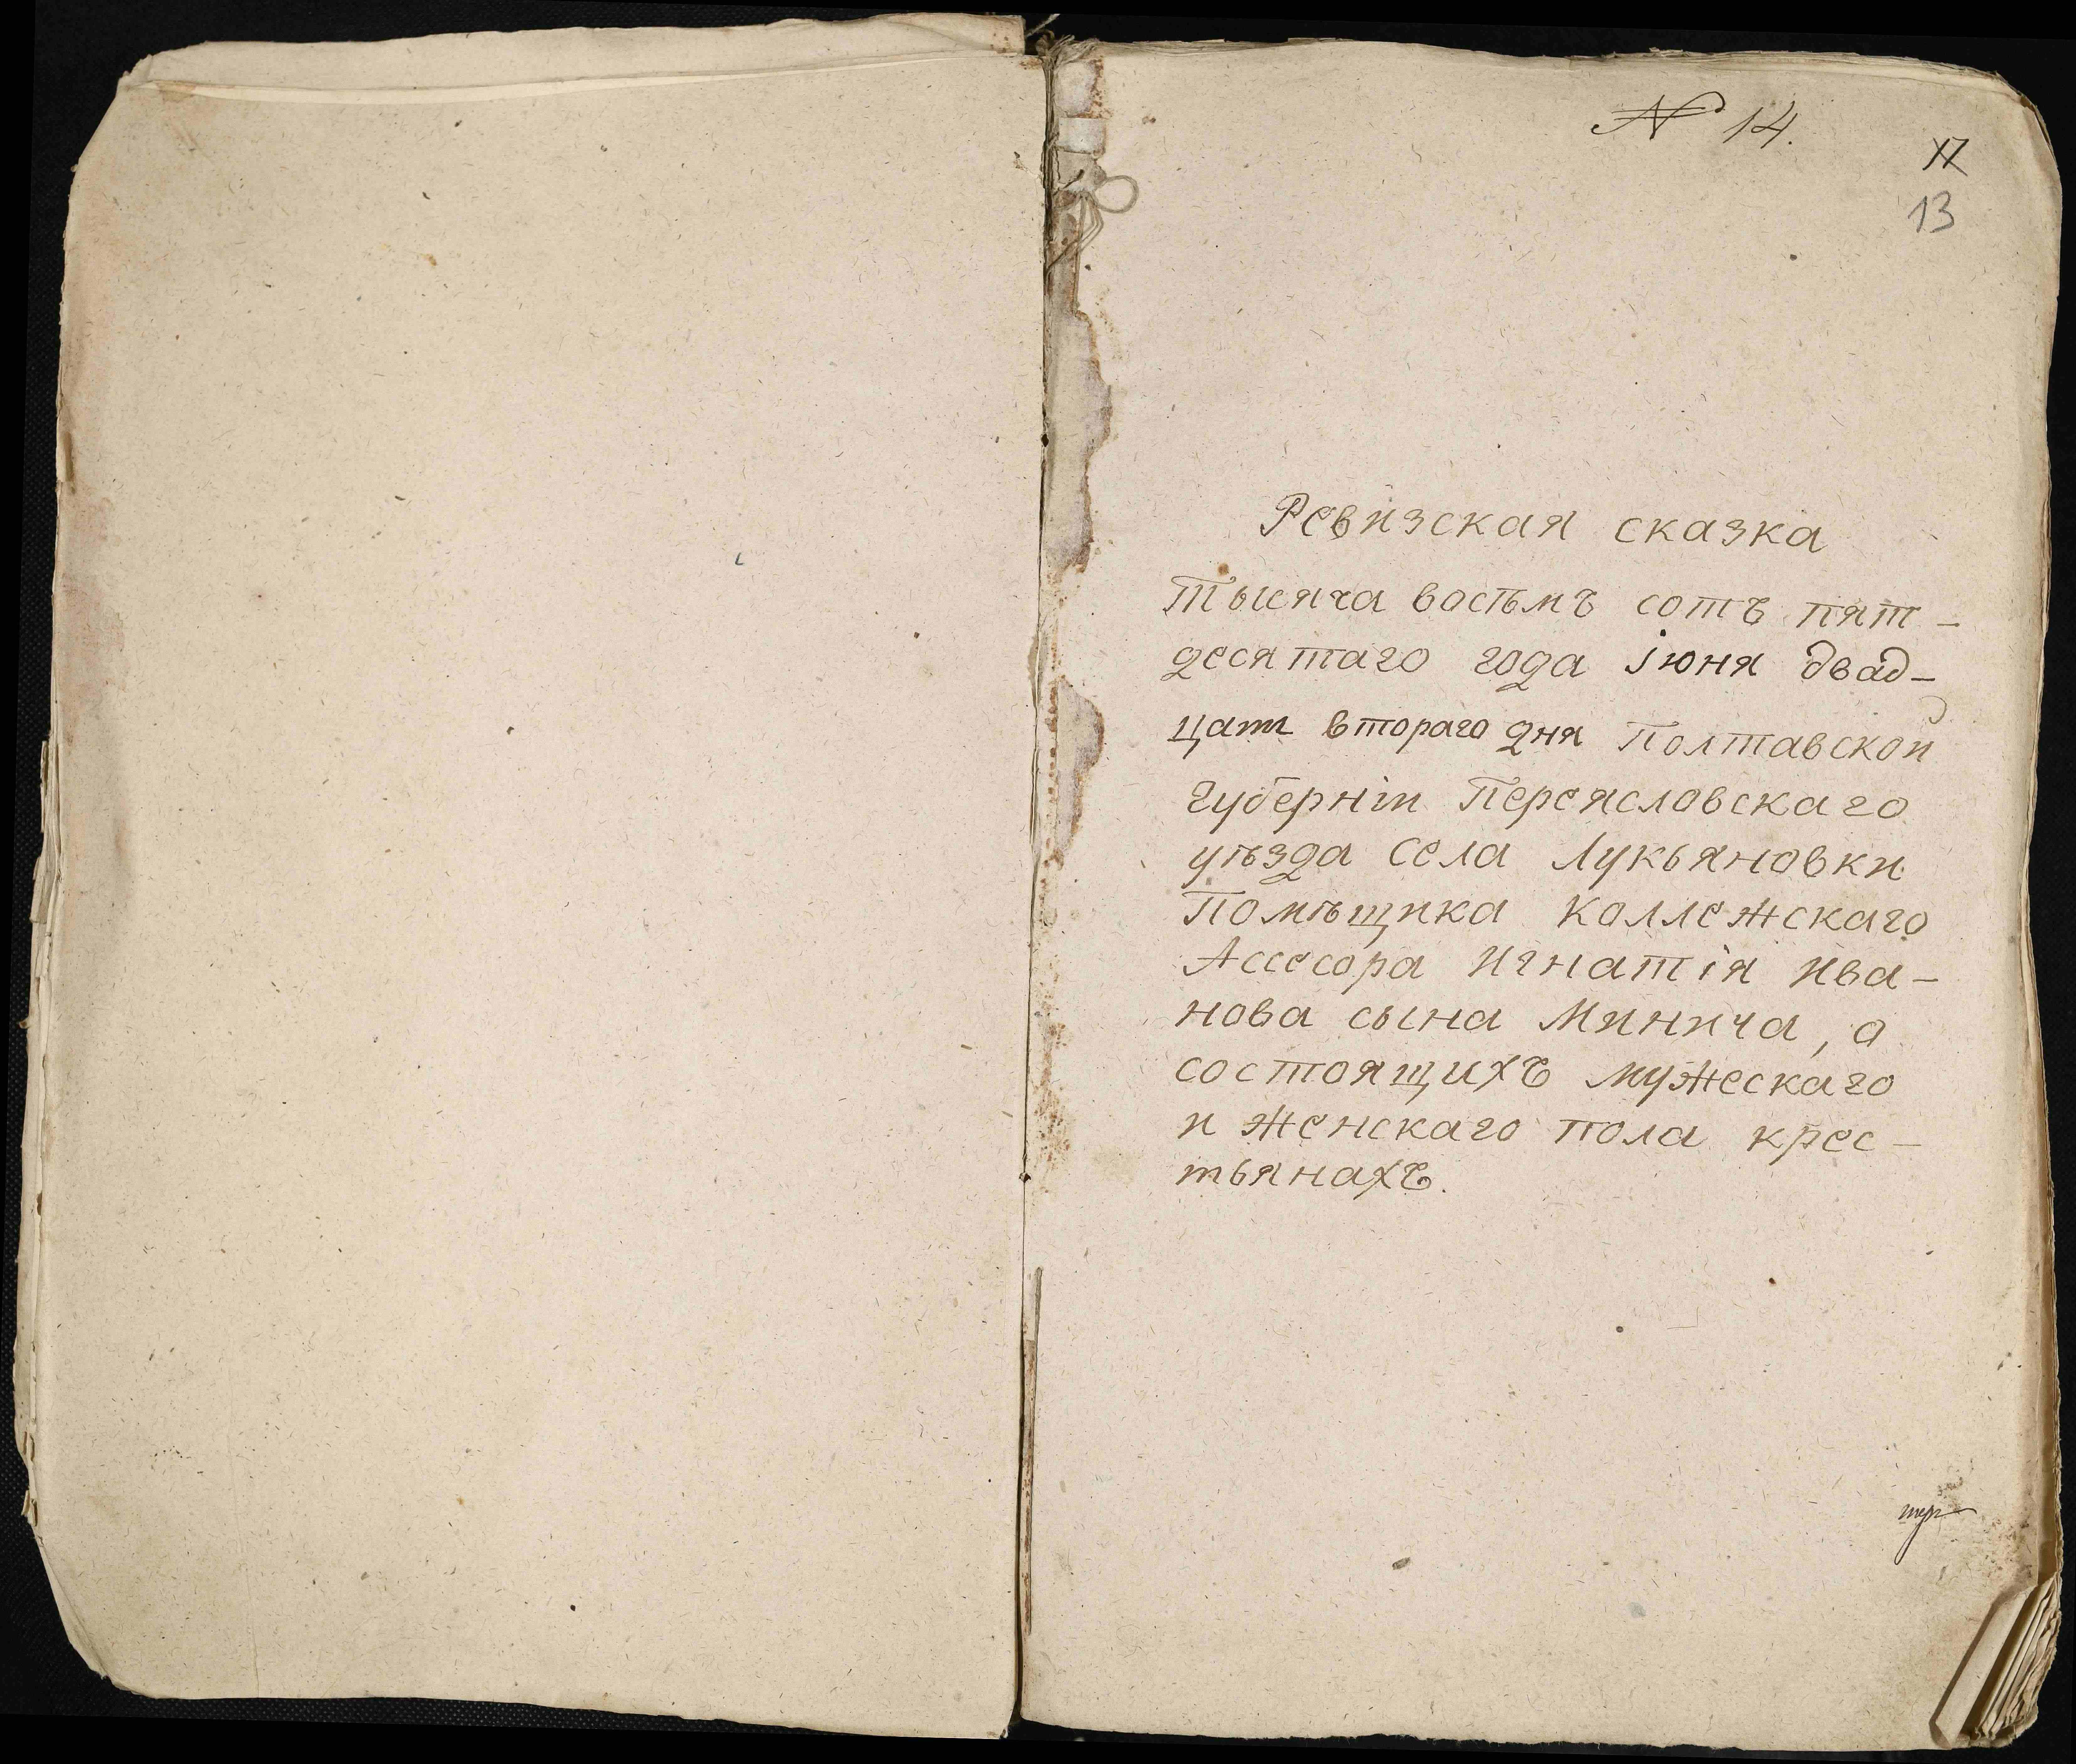 № 14.
13
Ревизская сказка
тысяча восѣмъ сотъ пят-
десятаго года Іюня двад-
цати втораго дня Полтавской
губерніи Переясловскаго
уѣзда села Лукьяновки
Помѣщика Коллежскаго
Ассесора Игнатія Ива-
нова сына Минича, о
состоящихъ мужескаго
и женскаго пола крес-
тьянахъ.